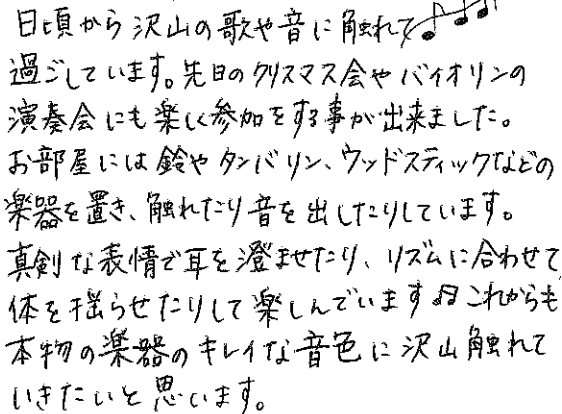 日頃から沢山の歌や音に触れて♪♫
過ごしています。先日のクリスマス会やバイオリンの
演奏会にも楽しく参加をする事が出来ました。
お部屋には鈴やタンバリン、ウッドスティックなどの
楽器を置き、触れたり音を出したりしています。
真剣な表情で耳を澄ませたり、リズムに合わせて
体を揺らせたりして楽しんでいます♫これからも
本物の楽器のキレイな音色に沢山触れて
いきたいと思います。